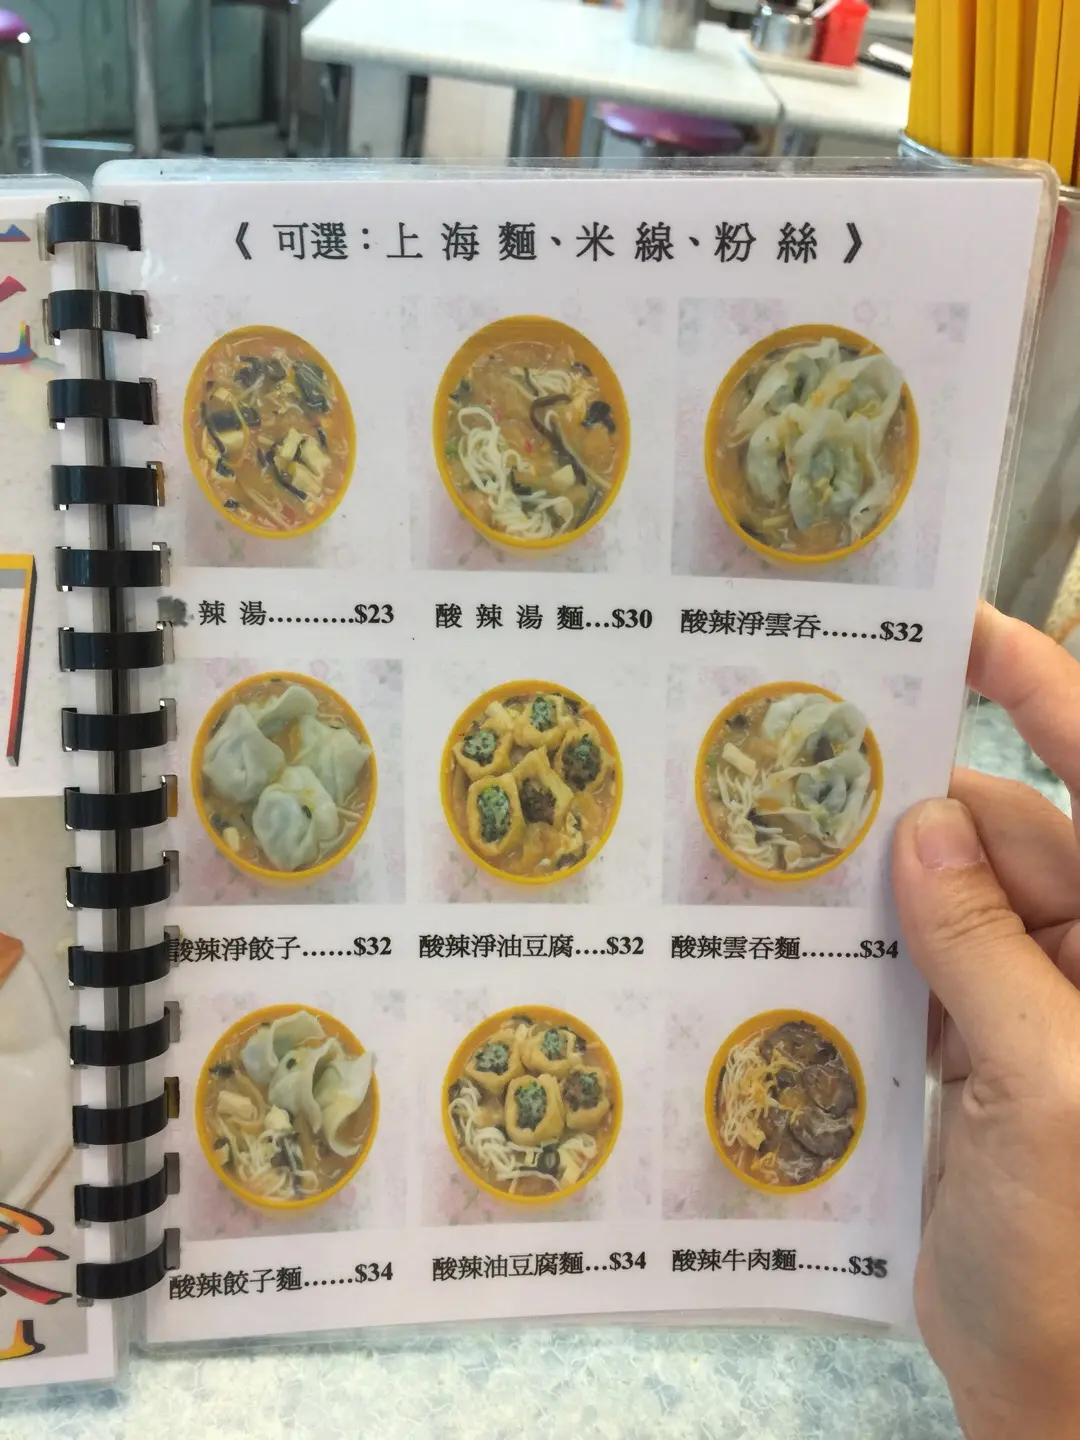 《 可選：上海麵、米線、粉絲 》
辣湯..........$23
酸辣湯麵...$30
酸辣淨雲吞......$32
酸辣淨餃子......$32
酸辣淨油豆腐....$32
酸辣雲吞麵.......$34
酸辣餃子麵......$34
酸辣油豆腐麵...$34
酸辣牛肉麵......$35